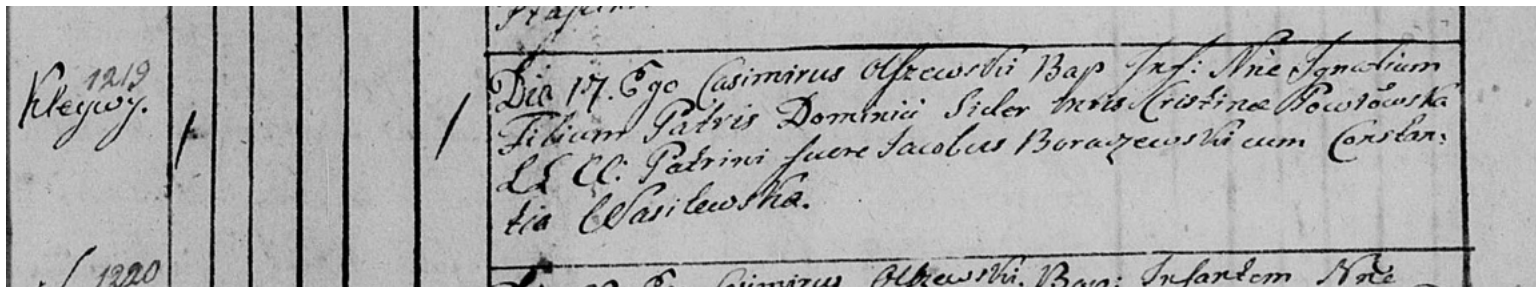 1219
Kleywy.
Dia 17. Ego Casimirus Olszewski Bap Inf: Nne Ignatium
Filium Patris Dominici Sider Mris Cristinæ Powłowska
LL CC: Patrini fuere Jacobus Boraczewski cum Constan:
tia Wasilewska.
1220
Casimirus Olszewski. Bap: Infantem Nne